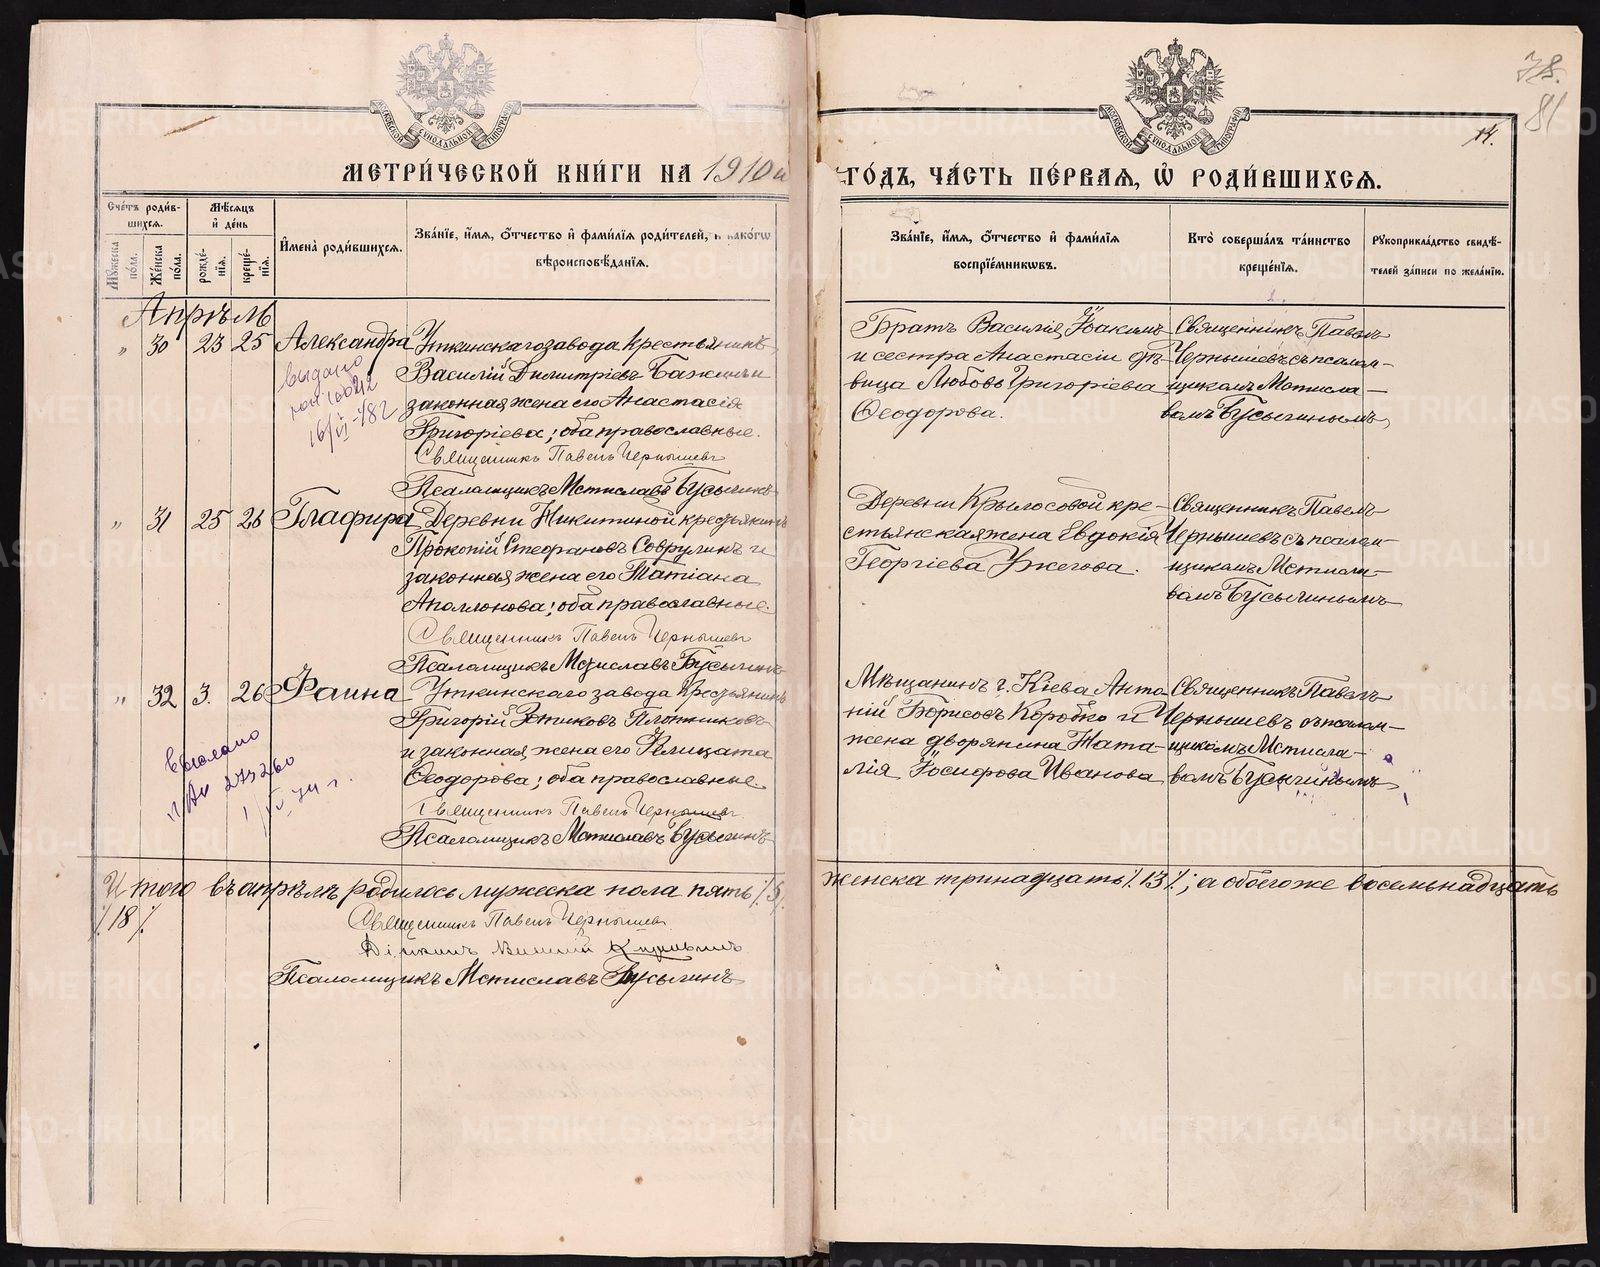 78.
81
14.
МОСКОВСКОЙ СѴНОДАЛЬНОЙ ТИПОГРАФІИ
МОСКОВСКОЙ СѴНОДАЛЬНОЙ ТИПОГРАФІИ
МЕТРИ́ЧЕСКОЙ КНИ́ГИ НА 1910й
ГО́ДЪ, ЧА́СТЬ ПЕ́РВАЯ, Ѡ҆ РОДИ́ВШИХСѦ.
Сче́тъ роди́в-
шихсѧ.
Мꙋ́жеска по́ла.
Же́нска по́ла.
Мѣ́сѧцъ
и҆ де́нь
рожде́-нїѧ.
креще́-нїѧ.
И҆мена̀ роди́вшихсѧ.
Зва́нїе, и҆́мѧ, ѻ҆́тчество и҆ фами́лїѧ роди́телей, и҆ како́гѡ
вѣроисповѣ́данїѧ.
Зва́нїе, и҆́мѧ, ѻ҆́тчество и҆ фами́лїѧ
воспрїе́мникѡвъ.
Кто̀ соверша́лъ та́инство
креще́нїѧ.
Рꙋкоприкла́дство свидѣ́-
телей за́писи по жела́нїю.
Апрѣль
„ 30 23 25 Александра
Уткинскаго завода крестьянинъ
Василій Димитріевъ Бажинъ и
законная жена его Анастасія
Григоріева; оба православные.
Священникъ Павелъ Чернышевъ
Псаломщикъ Мстиславъ Бусыгинъ
выдано
16/VI-82
Братъ Василія, Іоакимъ
и сестра Анастасіи дѣ-
вица Любовь Григоріева
Ѳеодорова.
Священникъ Павелъ
Чернышевъ съ псалом-
щикомъ Мстисла-
вомъ Бусыгинымъ
„ 31 25 26 Глафира
Деревни Никитиной крестьянинъ
Прокопій Стефановъ Соврулинъ и
законная жена его Татіана
Аполлонова; оба православные.
Священникъ Павелъ Чернышевъ
Псаломщикъ Мстиславъ Бусыгинъ
Деревни Крылосовой кре-
стьянская жена Евдокія
Георгіева Ужегова.
Священникъ Павелъ
Чернышевъ съ псалом-
щикомъ Мстисла-
вомъ Бусыгинымъ
„ 32 3. 26 Фаина
Уткинскаго завода крестьянинъ
Григорій Зотиковъ Плотниковъ
и законная жена его Фелицата
Ѳеодорова; оба православные.
Священникъ Павелъ Чернышевъ
Псаломщикъ Мстиславъ Бусыгинъ
Выслано
п/Ан 273260
1/IV 74 г.
Мѣщанинъ г. Кіева Анто-
ній Борисовъ Коробко и
жена дворянина Ната-
лія Іосифова Иванова
Священникъ Павелъ
Чернышевъ съ псалом-
щикомъ Мстисла-
вомъ Бусыгинымъ
Итого въ апрѣлѣ родилось мужеска пола пять /.5/. женска тринадцать /.13/.; а обоего же восемьнадцать
/.18/.
Священникъ Павелъ Чернышевъ
Діаконъ
Псаломщикъ Мстиславъ Бусыгинъ
METRIKI.GASO-URAL.RU